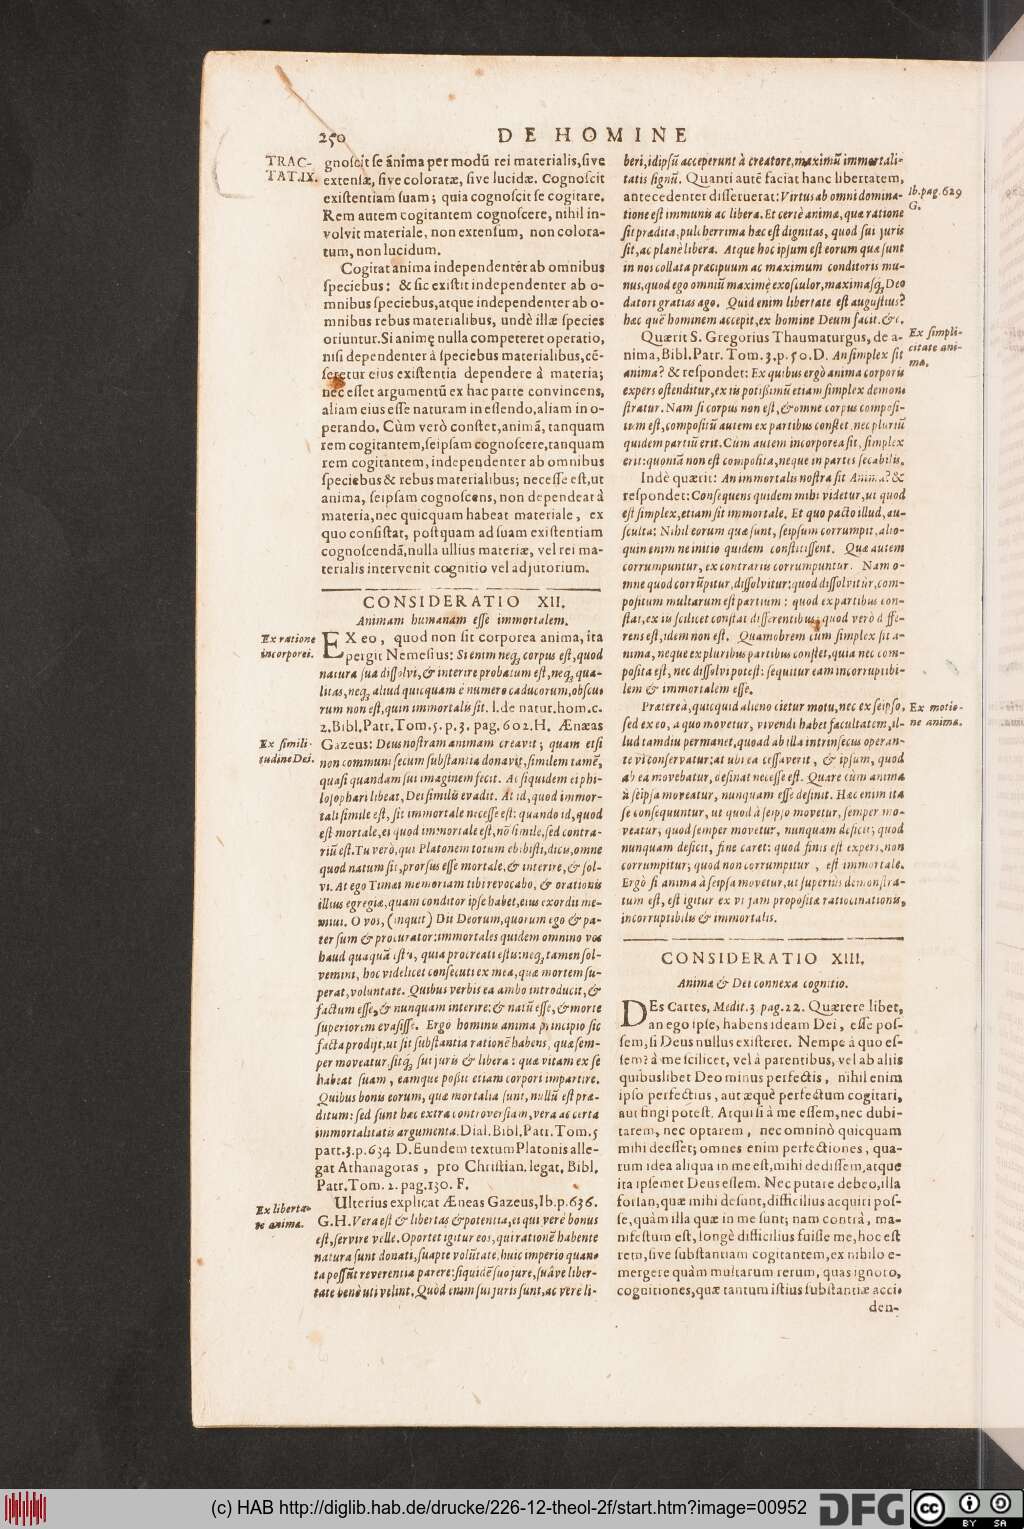 250
DE HOMINE
TRAC-
TAT.IX.
gnoscit se ánima per modũ rei materialis, sive
extensæ, sive coloratæ, sive lucidæ. Cognoscit
existentiam suam; quia cognoscit se cogitare.
Rem autem cogitantem cognoscere, nihil in-
volvit materiale, non extensum, non colora-
tum, non lucidum.
Cogitat anima independenter ab omnibus
speciebus: & sic existit independenter ab o-
mnibus speciebus, atque independenter ab o-
mnibus rebus materialibus, undè illæ species
oriuntur. Si animę nulla competeret operatio,
nisi dependenter à speciebus materialibus, cẽ-
seretur eius existentia dependere à materia;
nec esset argumentũ ex hac parte convincens,
aliam eius esse naturam in essendo, aliam in o-
perando. Cùm verò constet, animã, tanquam
rem cogitantem, seipsam cognoscere, tanquam
rem cogitantem, independenter ab omnibus
speciebus & rebus materialibus; necesse est, ut
anima, seipsam cognoscens, non dependeat à
materia, nec quicquam habeat materiale, ex
quo consistat, postquam ad suam existentiam
cognoscendã, nulla ullius materiæ, vel rei ma-
terialis intervenit cognitio vel adjutorium.
CONSIDERATIO XII.
Animam humanam esse immortalem.
Ex ratione
incorporei.
EX eo, quod non sit corporea anima, ita
pergit Nemesius: Si enim neq; corpus est, quod
natura sua dissolvi, & interire probatum est, neq; qua-
litas, neq; aliud quicquam è numero caducorum, obscu-
rum non est, quin immortalis sit. l. de natur. hom. c.
2. Bibl. Patr. Tom. 5. p. 3. pag. 602. H. Ænæas
Ex simili-
tudine Dei.
Gazeus: Deus nostram animam creavit; quam etsi
non communi secum substantia donavit, similem tamẽ,
quasi quandam sui imaginem fecit. At siquidem ei phi-
losophari libeat, Dei similis evadit. At id, quod immor-
tali simile est, sit immortale necesse est: quando id, quod
est mortale, ei quod immortale est, nõ simile, sed contra-
riũ est. Tu verò, qui Platonem totum ebibisti, dicis, omne
quod natum sit, prorsus esse mortale, & interire, & sol-
vi. At ego Timæi memoriam tibi revocabo, & orationis
illius egregiæ, quam conditor ipse habet, eius exordii me-
mini. O vos, (inquit) Dii Deorum, quorum ego & pa-
ter sum & procurator: immortales quidem omnino vos
haud quaquã estis, quia procreati estis: neq; tamen sol-
vemini, hoc videlicet consecuti ex mea, quæ mortem su-
perat, voluntate. Quibus verbis ea ambo introducit, &
factum esse, & nunquam interire: & natũ esse, & morte
superiorem evasisse. Ergo hominis anima principio sic
facta prodijt, ut sit substantia rationẽ habens, quæ sem-
per moveatur, sitq; sui juris & libera: quæ vitam ex se
habeat suam, eamque possit etiam corpori impartire.
Quibus bonis eorum, quæ mortalia sunt, nullũ est præ-
ditum: sed sunt hæc extra controversiam, vera ac certa
immortalitatis argumenta. Dial. Bibl. Patr. Tom. 5
part. 3. p. 634 D. Eundem textum Platonis alle-
gat Athanagoras, pro Christian. legat. Bibl.
Patr. Tom. 2. pag. 130. F.
Ex liberta-
te anima.
Ulterius explicat Æneas Gazeus, Ib. p. 636.
G. H. Vera est & libertas & potentia, ei qui verè bonus
est, servire velle. Oportet igitur eos, qui rationẽ habente
natura sunt donati, suapte volũtate, huic imperio quan-
ta possũt reverentia parere: siquidẽ suo jure, suâve liber-
tate benè uti velint. Quòd enim sui juris sunt, ac verè li-
beri, id ipsũ acceperunt à creatore, maximũ immortali-
tatis signũ. Quanti autẽ faciat hanc libertatem,
antecedenter disseruerat: Virtus ab omni domina-
tione est immunis ac libera. Et certè anima, quæ ratione
sit prædita, pulcherrima hæc est dignitas, quod sui juris
sit, ac planè libera. Atque hoc ipsum est eorum quæ sunt
in nos collata præcipuum ac maximum conditoris mu-
nus, quod ego omniũ maximè exosculor, maximasq; Deo
datori gratias ago. Quid enim libertate est augustius?
hæc quẽ hominem accepit, ex homine Deum facit. &c.
Ib. pag. 629
G.
Ex simpli-
citate ani-
ma.
Quærit S. Gregorius Thaumaturgus, de a-
nima, Bibl. Patr. Tom. 3. p. 50. D. An simplex sit
anima? & respondet: Ex quibus ergò anima corporis
expers ostenditur, ex iis potissimũ etiam simplex demon-
stratur. Nam si corpus non est, & omne corpus composi-
tum est, compositũ autem ex partibus constet, nec pluriũ
quidem partiũ erit. Cùm autem incorporea sit, simplex
erit: quoniã non est composita, neque in partes secabilis.
Indè quærit: An immortalis nostra sit Anima? &
respondet: Consequens quidem mihi videtur, ut quod
est simplex, etiam sit immortale. Et quo pacto illud, au-
sculta: Nihil eorum quæ sunt, seipsum corrumpit, alio-
quin enim ne initio quidem constitissent. Quæ autem
corrumpuntur, ex contrariis corrumpuntur. Nam o-
mne quod corrũpitur, dissolvitur: quod dissolvitur, com-
positum multarum est partium: quod ex partibus con-
stat, ex iis scilicet constat differentibus: quod verò diffe-
rens est, idem non est. Quamobrem cùm simplex sit a-
nima, neque ex pluribus partibus constet, quia nec com-
posita est, nec dissolvi potest: sequitur eam incorruptibi-
lem & immortalem esse.
Ex motio-
ne anima.
Præterea, quicquid alieno cietur motu, nec ex seipso,
sed ex eo, a quo movetur, vivendi habet facultatem, il-
lud tamdiu permanet, quoad ab illa intrinsecus operan-
te vi conservatur: at ubi ea cessaverit, & ipsum, quod
ab ea movebatur, desinat necesse est. Quare cùm anima
à seipsa moveatur, nunquam esse desinit. Hæc enim ita
se consequuntur, ut quod à seipso movetur, semper mo-
veatur; quod semper movetur, nunquam deficit; quod
nunquam deficit, fine caret: quod finis est expers, non
corrumpitur; quod non corrumpitur, est immortale.
Ergò si anima à seipsa movetur, ut superius demonstra-
tum est, est igitur ex vi jam propositæ ratiocinationis,
incorruptibilis & immortalis.
CONSIDERATIO XIII.
Animæ & Dei connexa cognitio.
DEs Cartes, Medit. 3. pag. 22. Quærere libet,
an ego ipse, habens ideam Dei, esse pos-
sem, si Deus nullus existeret. Nempe à quo es-
sem? à me scilicet, vel à parentibus, vel ab aliis
quibuslibet Deo minus perfectis, nihil enim
ipso perfectius, aut æquè perfectum cogitari,
aut fingi potest. Atqui si à me essem, nec dubi-
tarem, nec optarem, nec omninò quicquam
mihi deesset; omnes enim perfectiones, qua-
rum idea aliqua in me est, mihi dedissem, atque
ita ipsemet Deus essem. Nec putare debeo, illa
forsan, quæ mihi desunt, difficilius acquiri pos-
se, quàm illa quæ in me sunt; nam contrà, ma-
nifestum est, longè difficilius fuisse me, hoc est
rem, sive substantiam cogitantem, ex nihilo e-
mergere quàm multarum rerum, quas ignoro,
cognitiones, quæ tantum istius substantiæ acci-
den-
(c) HAB http://diglib.hab.de/drucke/226-12-theol-2f/start.htm?image=00952
DFG
cc
BY SA